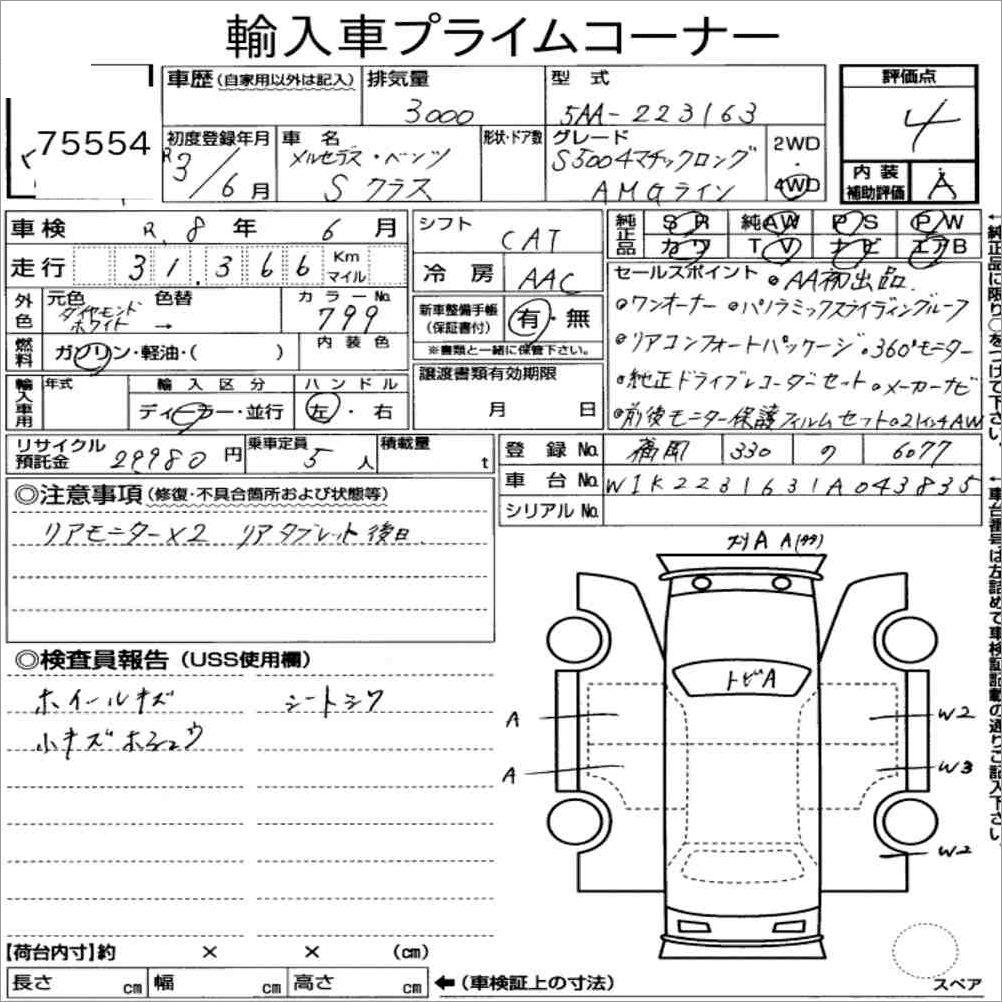 輸入車プライムコーナー
75554
車歴(自家用以外は記入)
排気量
3000
型式
5AA-223163
評価点
4
初度登録年月
R3/6月
車名
メルセデス・ベンツ
Sクラス
形状・ドア数
グレード
S5004マチックロング
AMGライン
2WD
・
4WD
内装
補助評価
A
車検 R.8年 6月
シフト
CAT
純正品
SR 純AW PS PW
カワ TV ナビ エアB
走行 31,366 Km マイル
冷房 AAC
セールスポイント ●AA初出品.
●ワンオーナー ●パノラミックスライディングルーフ
●リアコンフォートパッケージ ●360°モニター
●純正ドライブレコーダーセット ●メーカーナビ
●前後モニター保護フィルムセット ●21インチAW
外色
元色 色替 カラーNo.
ダイヤモンド
ホワイト → 799
新車整備手帳
(保証書付)
有・無
※書類と一緒に保管下さい。
燃料
ガソリン・軽油・( )
内装色
譲渡書類有効期限
月 日
輸入車用
年式 輸入区分 ハンドル
ディーラー・並行 左・右
リサイクル
預託金
29980円
乗車定員
5人
積載量
t
登録No. 福岡 330 の 6077
車台No. W1K2231631A043835
シリアルNo.
◎注意事項(修復・不具合箇所および状態等)
リアモニター×2 リアタブレット後日
◎検査員報告(USS使用欄)
ホイールキズ シートシワ
小キズホシュウ
A A(タタ)
トビA
A
A
W2
W3
W2
スペア
【荷台内寸】約 × × (cm)
長さ cm 幅 cm 高さ cm ←(車検証上の寸法)
↑純正品に限り○をつけて下さい。
↑車台番号は左詰めで車検証記載の通りご記入下さい。